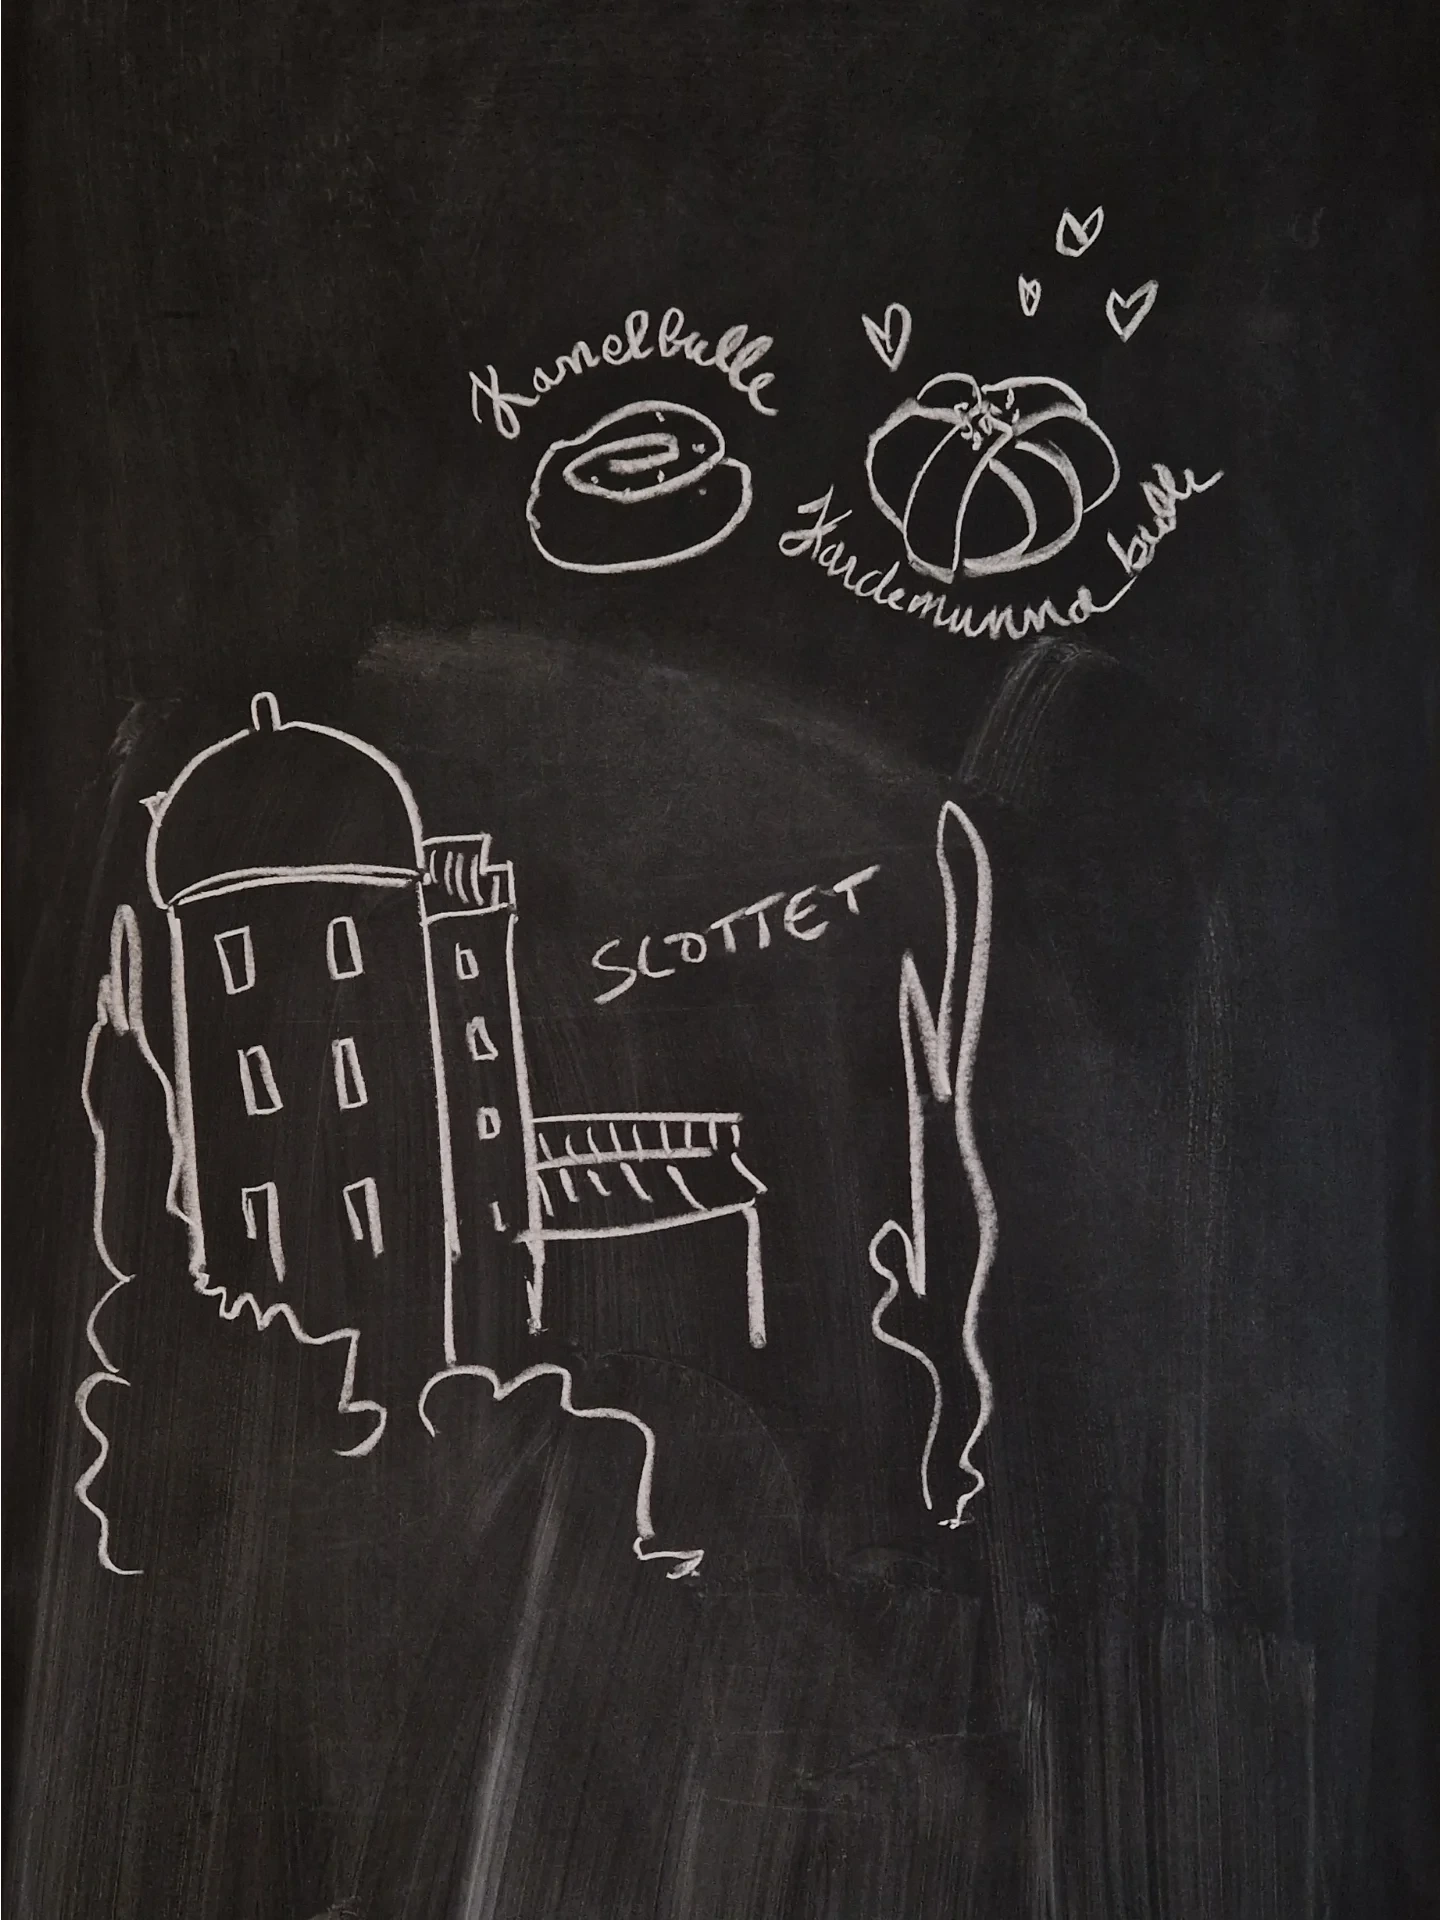 Kanelbulle
Kardemumma bulle
SLOTTET